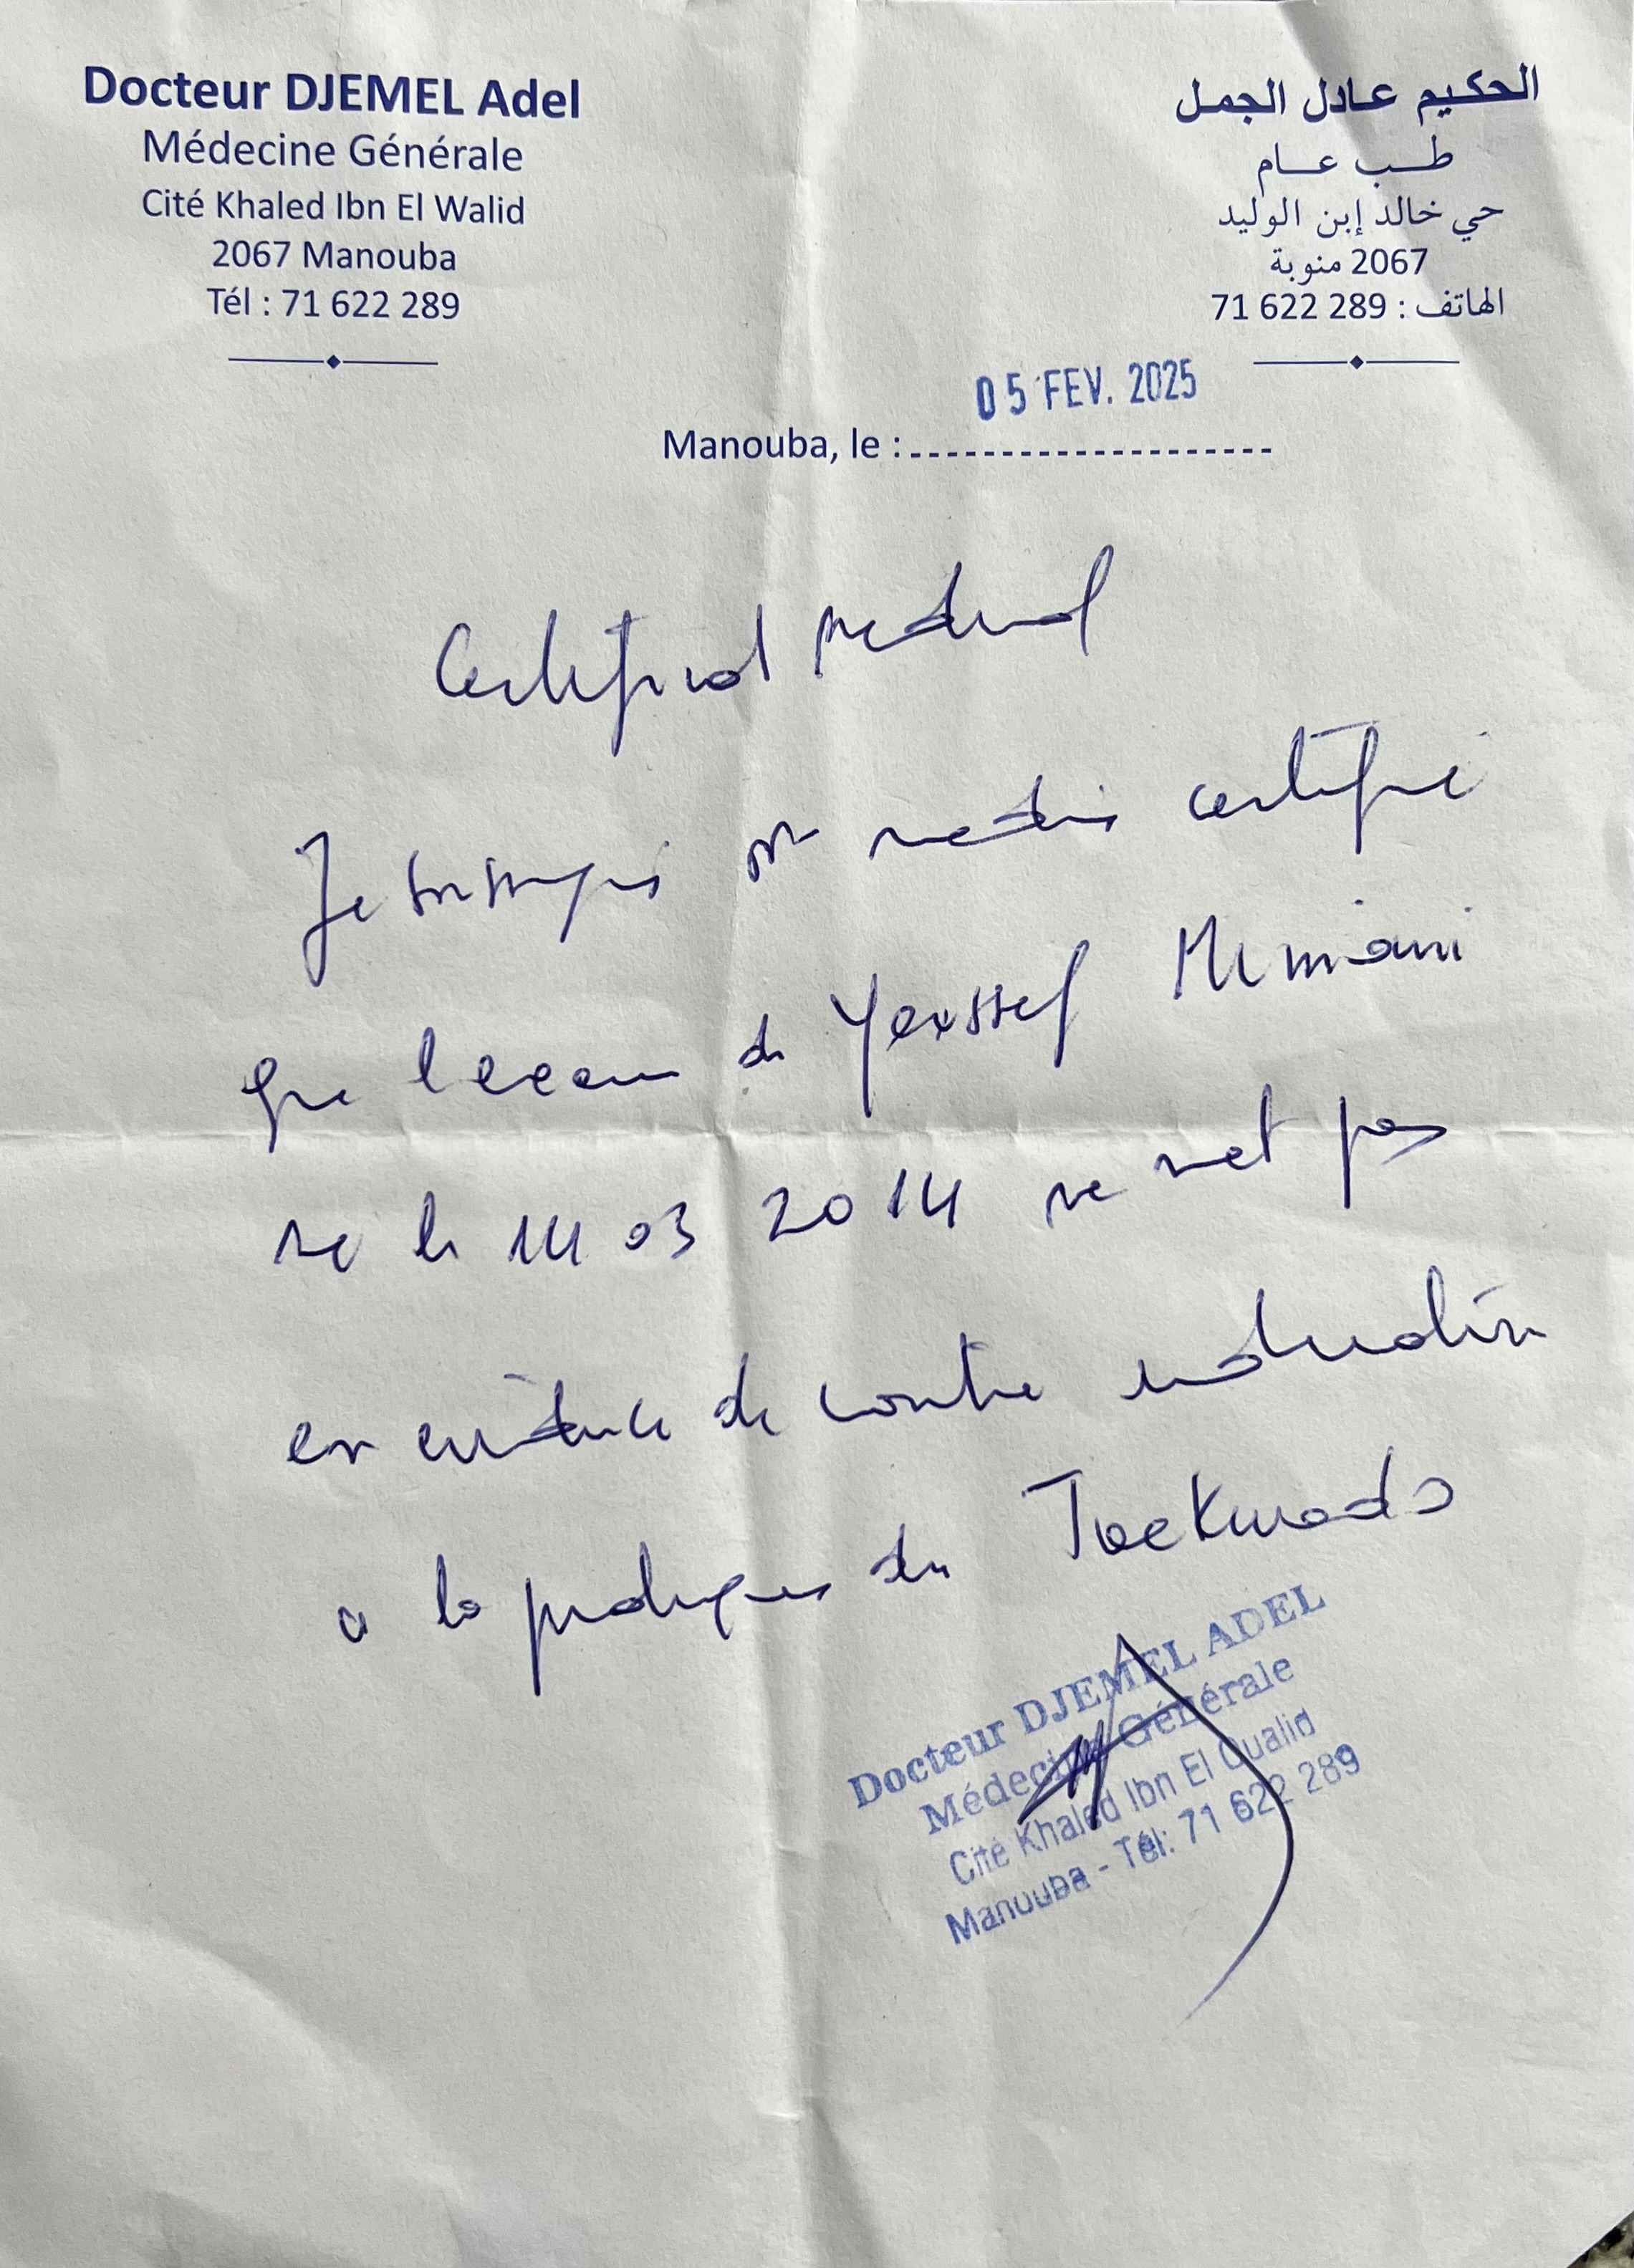 Docteur DJEMEL Adel
Médecine Générale
Cité Khaled Ibn El Walid
2067 Manouba
Tél : 71 622 289
الحكيم عادل الجمل
طب عام
حي خالد إبن الوليد
2067 منوبة
الهاتف : 289 622 71
05 FEV. 2025
Manouba, le :
Certificat medical
Je soussigné medecin certifie
que l'examen de Youssef Mimouni
ne le 14 03 2014 ne met pas
en evidence de contre indication
a la pratique du Taekwondo
Docteur DJEMEL ADEL
Médecine Générale
Cité Khaled Ibn El Oualid
Manouba - Tél: 71 622 289